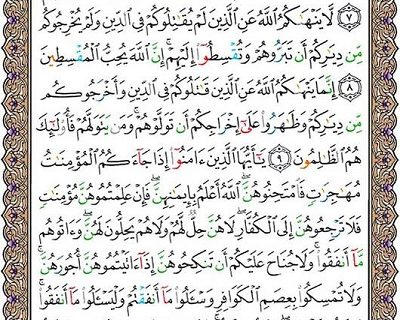 ٧ لَّا يَنْهَىٰكُمُ ٱللَّهُ عَنِ ٱلَّذِينَ لَمْ يُقَٰتِلُوكُمْ فِى ٱلدِّينِ وَلَمْ يُخْرِجُوكُم
مِّن دِيَٰرِكُمْ أَن تَبَرُّوهُمْ وَتُقْسِطُوٓا۟ إِلَيْهِمْ ۚ إِنَّ ٱللَّهَ يُحِبُّ ٱلْمُقْسِطِينَ
٨ إِنَّمَا يَنْهَىٰكُمُ ٱللَّهُ عَنِ ٱلَّذِينَ قَٰتَلُوكُمْ فِى ٱلدِّينِ وَأَخْرَجُوكُم
مِّن دِيَٰرِكُمْ وَظَٰهَرُوا۟ عَلَىٰٓ إِخْرَاجِكُمْ أَن تَوَلَّوْهُمْ ۚ وَمَن يَتَوَلَّهُمْ فَأُو۟لَٰٓئِكَ
هُمُ ٱلظَّٰلِمُونَ ٩ يَٰٓأَيُّهَا ٱلَّذِينَ ءَامَنُوٓا۟ إِذَا جَآءَكُمُ ٱلْمُؤْمِنَٰتُ
مُهَٰجِرَٰتٍ فَٱمْتَحِنُوهُنَّ ۖ ٱللَّهُ أَعْلَمُ بِإِيمَٰنِهِنَّ ۖ فَإِنْ عَلِمْتُمُوهُنَّ مُؤْمِنَٰتٍ
فَلَا تَرْجِعُوهُنَّ إِلَى ٱلْكُفَّارِ ۖ لَا هُنَّ حِلٌّ لَّهُمْ وَلَا هُمْ يَحِلُّونَ لَهُنَّ ۖ وَءَاتُوهُم
مَّآ أَنفَقُوا۟ ۚ وَلَا جُنَاحَ عَلَيْكُمْ أَن تَنكِحُوهُنَّ إِذَآ ءَاتَيْتُمُوهُنَّ أُجُورَهُنَّ ۚ
وَلَا تُمْسِكُوا۟ بِعِصَمِ ٱلْكَوَافِرِ وَسْـَٔلُوا۟ مَآ أَنفَقْتُمْ وَلْيَسْـَٔلُوا۟ مَآ أَنفَقُوا۟ ۚ